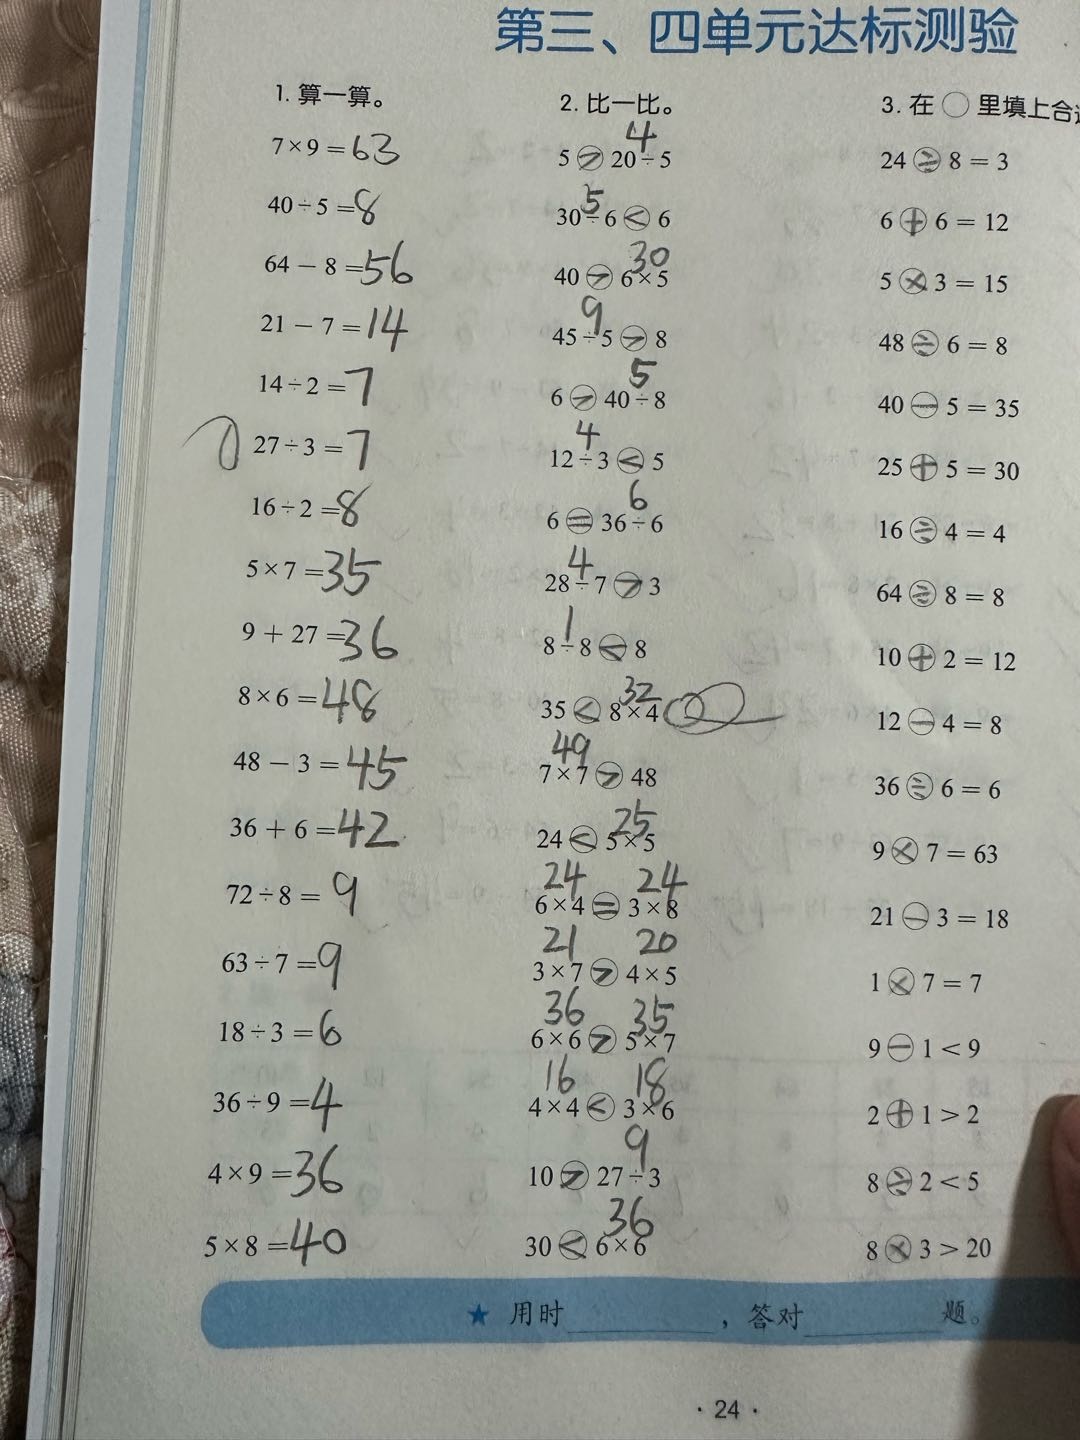 第三、四单元达标测验
1. 算一算。
7×9=63
40÷5=8
64－8=56
21－7=14
14÷2=7
27÷3=7
16÷2=8
5×7=35
9＋27=36
8×6=48
48－3=45
36＋6=42
72÷8=9
63÷7=9
18÷3=6
36÷9=4
4×9=36
5×8=40
2. 比一比。
4
5＞20÷5
5
30÷6＜6
30
40＞6×5
9
45÷5＞8
5
6＞40÷8
4
12÷3＜5
6
6=36÷6
4
28÷7＞3
1
8÷8＜8
32
35＜8×4
49
7×7＞48
25
24＜5×5
24 24
6×4=3×8
21 20
3×7＞4×5
36 35
6×6＞5×7
16 18
4×4＜3×6
9
10＞27÷3
36
30＜6×6
3. 在○里填上合
24÷8=3
6＋6=12
5×3=15
48÷6=8
40－5=35
25＋5=30
16÷4=4
64÷8=8
10＋2=12
12－4=8
36÷6=6
9×7=63
21－3=18
1×7=7
9－1＜9
2＋1＞2
8÷2＜5
8×3＞20
★ 用时，答对题。
·24·